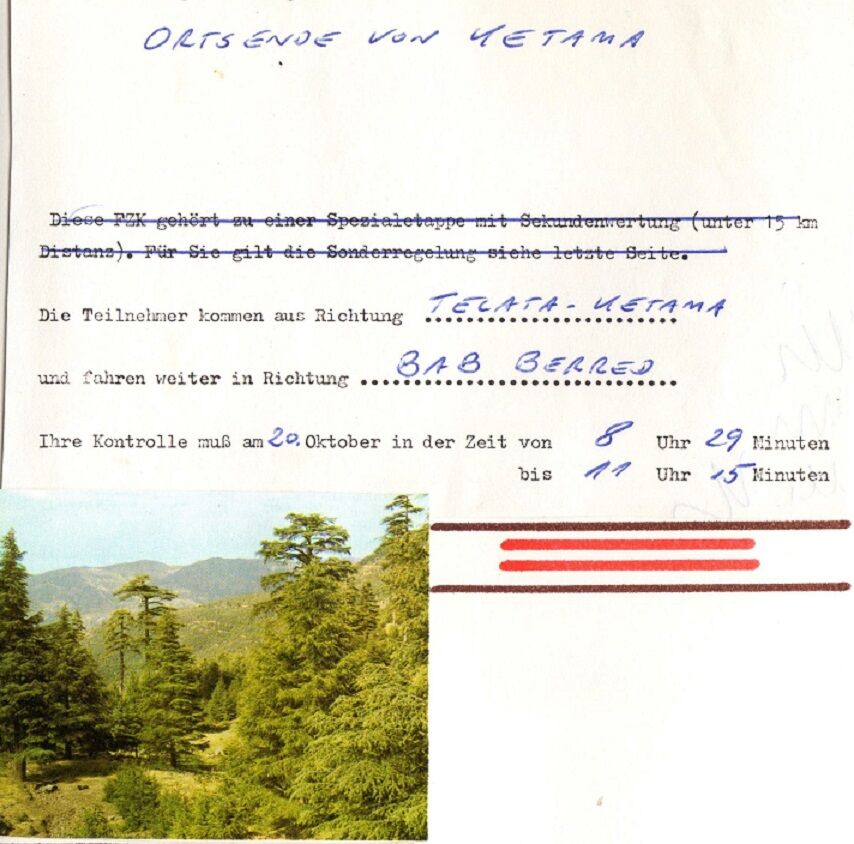 ORTSENDE VON KETAMA
Diese FZK gehört zu einer Spezialetappe mit Sekundenwertung (unter 15 km
Distanz). Für Sie gilt die Sonderregelung siehe letzte Seite.
Die Teilnehmer kommen aus Richtung TELATA-KETAMA
und fahren weiter in Richtung BAB BERRED
Ihre Kontrolle muß am 20. Oktober in der Zeit von 8 Uhr 29 Minuten
bis 11 Uhr 15 Minuten